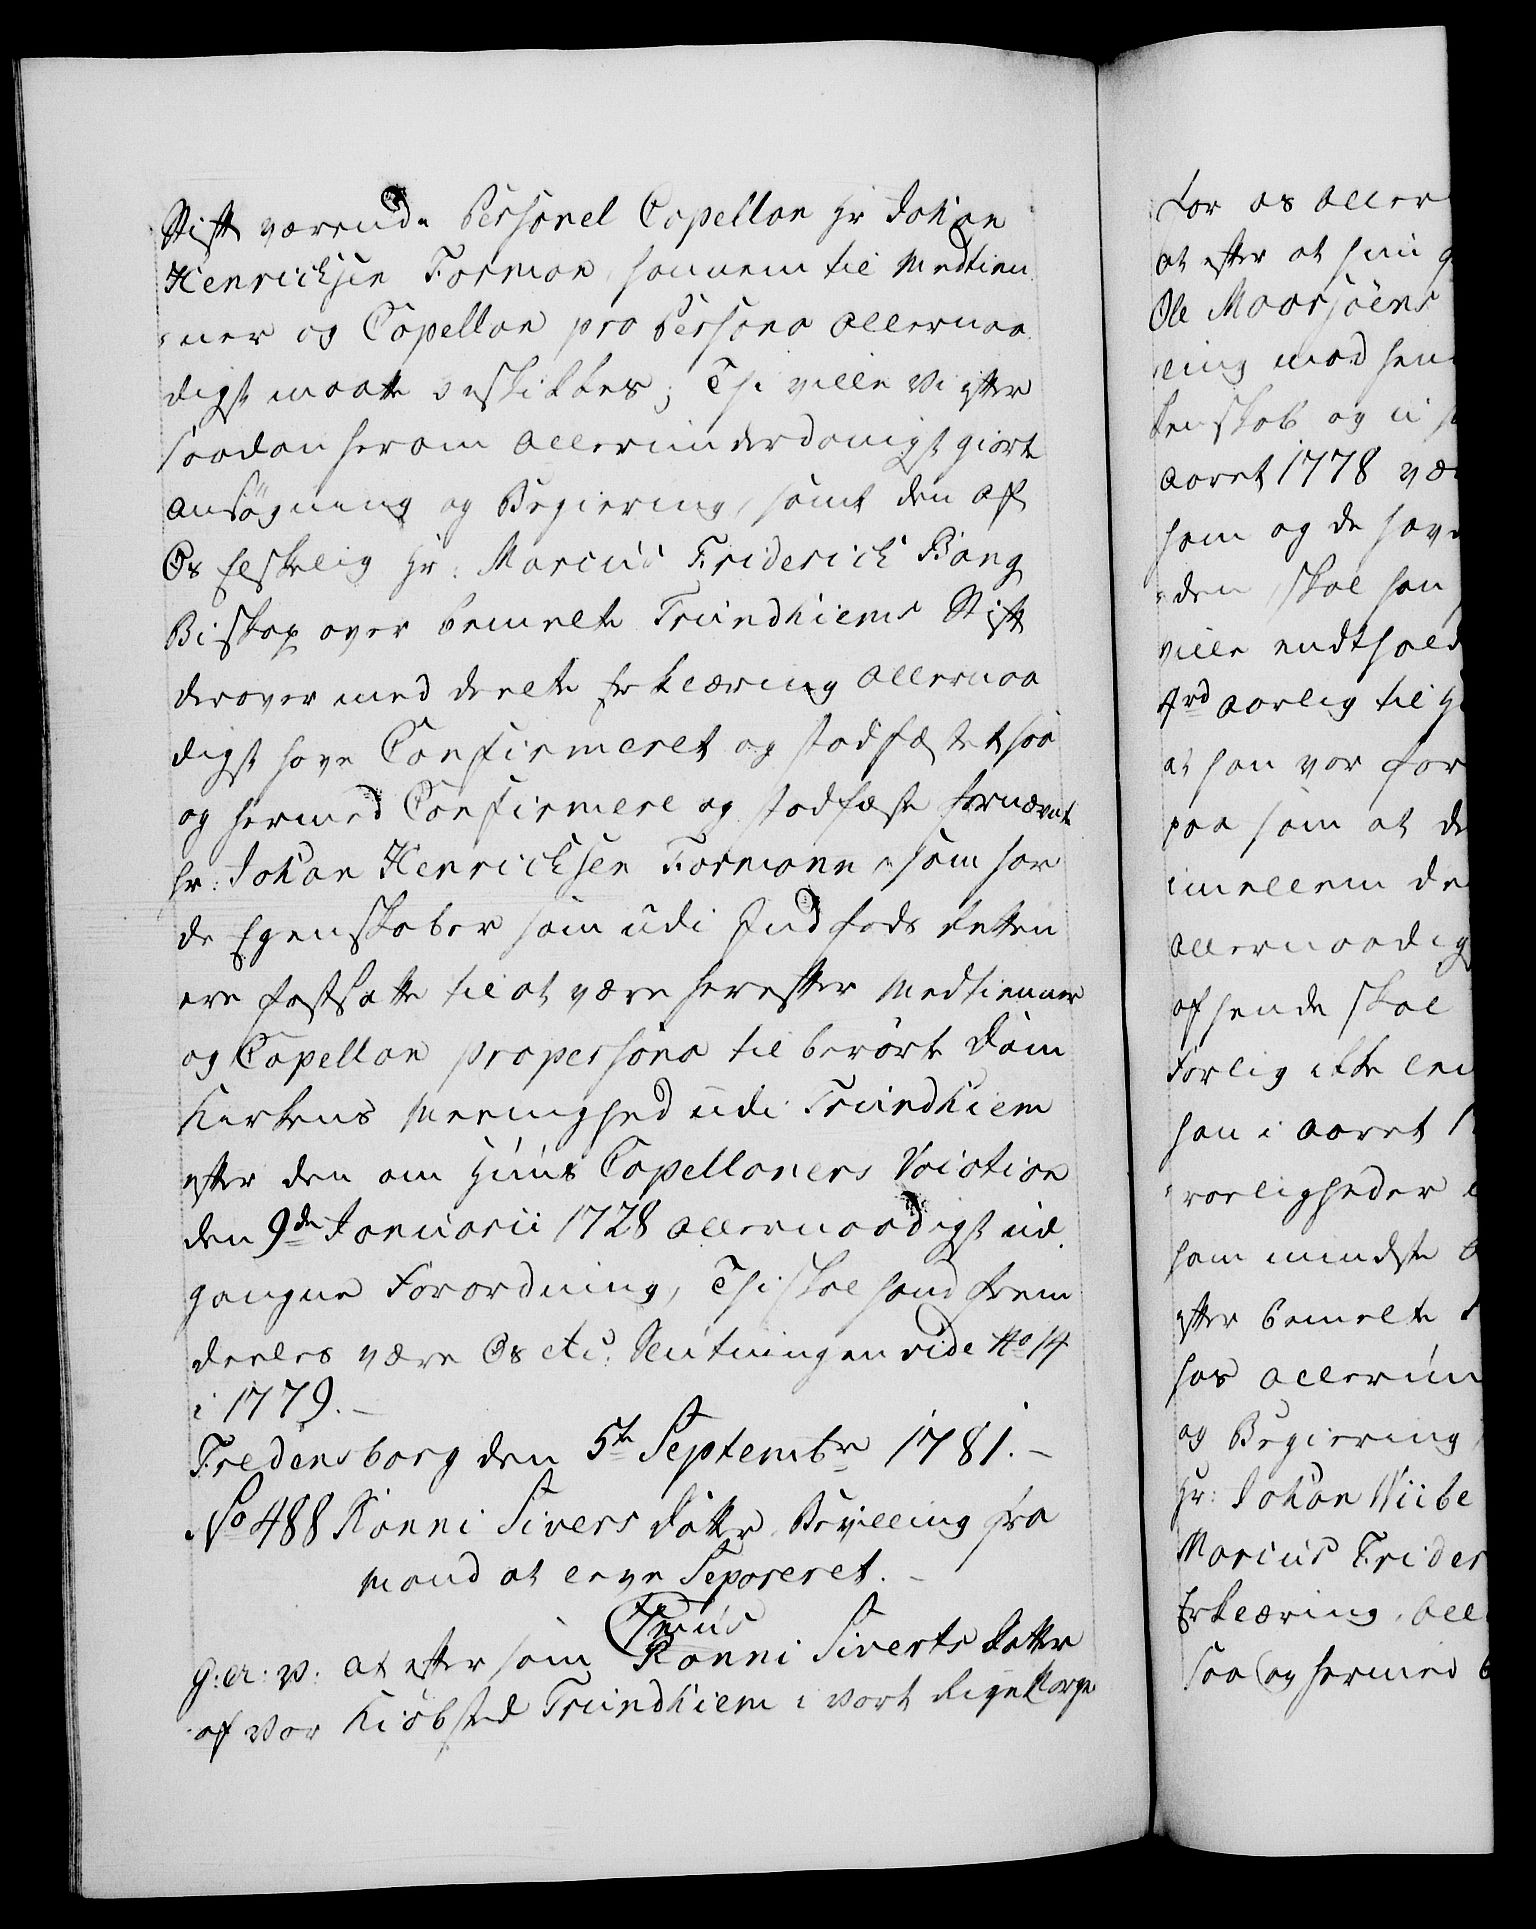 Stift værende Personel Capellan Hr Johan
Henrichsen Forman, hannem til Medtien-
-ner og Capellan pro Persona allernaa-
digst maatte beskikkes; Thi ville Vi efter
saadan herom allerunderdanigst giorte
ansøgning og Begiering, samt den af
Os Elskelig Hr: Marcus Friderich Bang
Biskop over bemelte Trundhiems Stift
derover meddeelte Erklæring allernaa
digst have Confirmeret og stadfæstet saa
og hermed Confirmere og stadfæste fornævnte
Hr: Johan Henrichsen Formann, som har
de Egenskaber som udi Indføds Retten
ere fastsatte til at være herefter Medtienner
og Capellan propersona til berørte Dom
Kirkens Meenighed udi Trundhiem
efter den om Huus Capellaners Vocation
den 9de Januarii 1728 allernaadigst ud-
gangne Forordning, Thi skal hand frem
deeles være Os etc: Slutningen vide No 14
i 1779.
Fredensborg den 5te Septembr 1781.
No 488 Ranni Sivers Datter Bevilling fra
Mand at leve Separeret.
G: A: V: at eftersom Ranni Siverts Datter
af Vor Kiøbsted Trundhiem i Vort Rige Norge
for os aller
at efter at hun
Ole Moorsøens
ling mod hen
kenskab og u
aaret 1778 væ
ham og de have
-den, skal han
ville endthold
4rd aarlig til
at han var for
paa som at de
imellem de
allernaadig
af hende skal
forlig ikke
han i aaret 1
-rarligheder
ham mindste
efter bemelte
has allerun
og Begiering,
Hr: Johan Wibe
Marcus Frider
Erklæring, all
saa og hermed